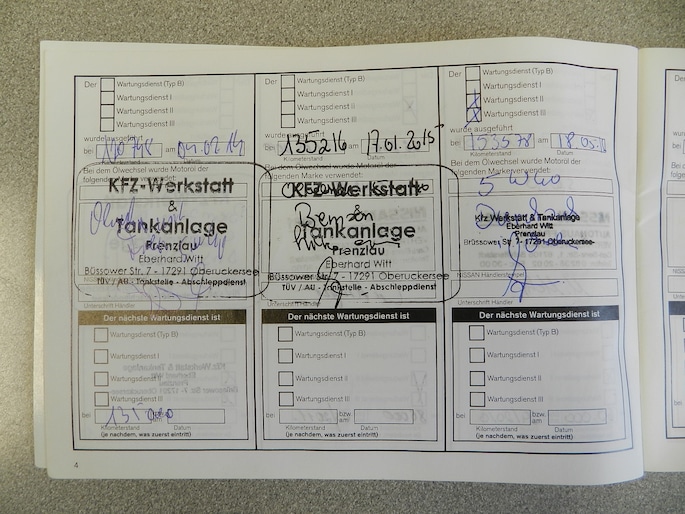 Der
Wartungsdienst (Typ B)
Wartungsdienst I
Wartungsdienst II
Wartungsdienst III
wurde ausgeführt
bei am 04.02.14
Kilometerstand Datum
Bei dem Ölwechsel wurde Motoröl der
folgenden Marke verwendet:
KFZ-Werkstatt
&
Tankanlage
Prenzlau
Eberhard Witt
Büssower Str. 7 - 17291 Oberuckersee
TÜV / AU - Tankstelle - Abschleppdienst
Unterschrift Händler
Der nächste Wartungsdienst ist
Wartungsdienst (Typ B)
Wartungsdienst I
Wartungsdienst II
Wartungsdienst III
bei 131000
Kilometerstand Datum
(je nachdem, was zuerst eintritt)
4
Der
Wartungsdienst (Typ B)
Wartungsdienst I
Wartungsdienst II
Wartungsdienst III
wurde ausgeführt
bei 135216 am 17.01.2015
Kilometerstand Datum
Bei dem Ölwechsel wurde Motoröl der
folgenden Marke verwendet:
KFZ-Werkstatt
&
Tankanlage
Prenzlau
Eberhard Witt
Büssower Str. 7 - 17291 Oberuckersee
TÜV / AU - Tankstelle - Abschleppdienst
Unterschrift Händler
Der nächste Wartungsdienst ist
Wartungsdienst (Typ B)
Wartungsdienst I
Wartungsdienst II
Wartungsdienst III
bei bzw. am
Kilometerstand Datum
(je nachdem, was zuerst eintritt)
Der
Wartungsdienst (Typ B)
Wartungsdienst I
Wartungsdienst II
Wartungsdienst III
wurde ausgeführt
bei 153578 am 18.05.
Kilometerstand Datum
Bei dem Ölwechsel wurde Motoröl der
folgenden Marke verwendet:
5 W40
Kfz Werkstatt & Tankanlage
Eberhard Witt
Prenzlau
Brüssower Str. 7-17291 Oberuckersee
NISSAN Händlerstempel
Unterschrift Händler
Der nächste Wartungsdienst ist
Wartungsdienst (Typ B)
Wartungsdienst I
Wartungsdienst II
Wartungsdienst III
bei bzw. am
Kilometerstand Datum
(je nachdem, was zuerst eintritt)